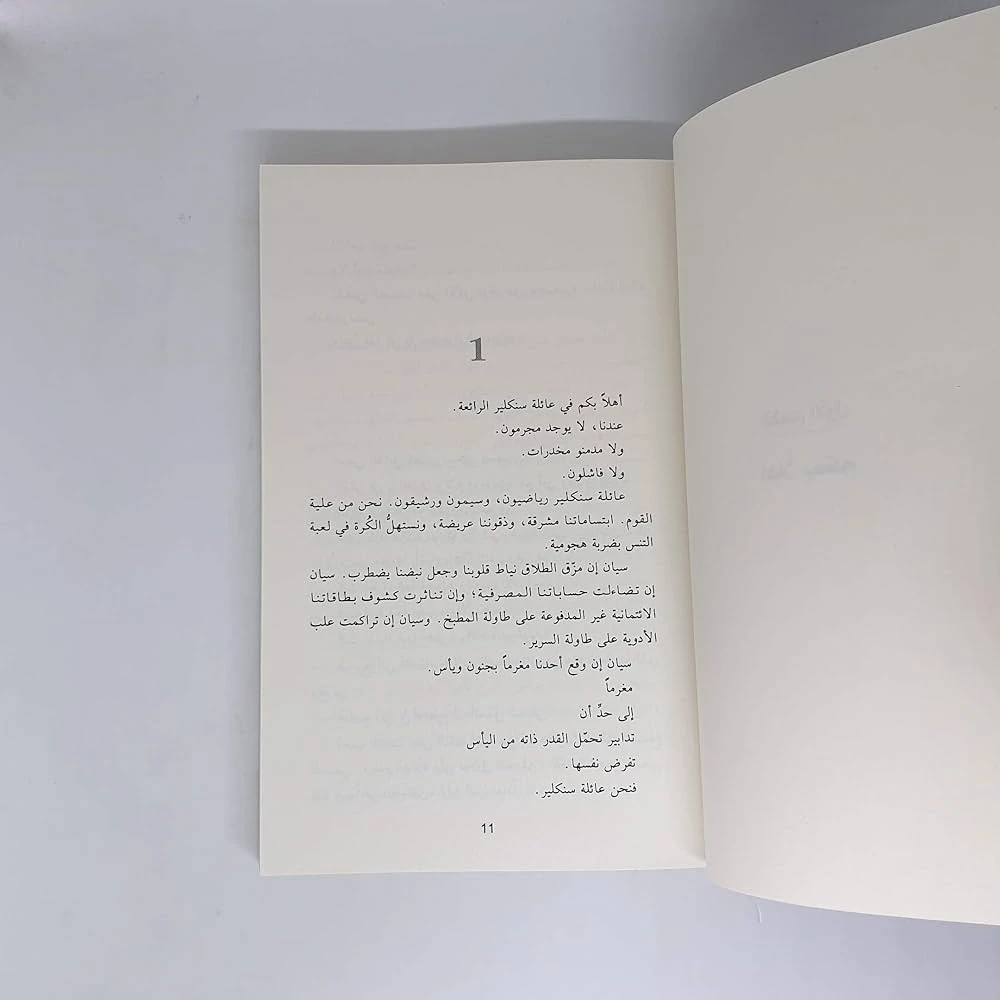 1
أهلاً بكم في عائلة سنكلير الرائعة.
عندنا، لا يوجد مجرمون.
ولا مدمنو مخدرات.
ولا فاشلون.
عائلة سنكلير رياضيون، وسيمون ورشيقون. نحن من علية
القوم. ابتساماتنا مشرقة، وذقوننا عريضة، ونستهلُّ الكُرة في لعبة
التنس بضربة هجومية.
سيان إن مزّق الطلاق نياط قلوبنا وجعل نبضنا يضطرب. سيان
إن تضاءلت حساباتنا المصرفية؛ وإن تناثرت كشوف بطاقاتنا
الائتمانية غير المدفوعة على طاولة المطبخ. وسيان إن تراكمت علب
الأدوية على طاولة السرير.
سيان إن وقع أحدنا مغرماً بجنون ويأس.
مغرماً
إلى حدِّ أن
تدابير تحمّل القدر ذاته من اليأس
تفرض نفسها.
فنحن عائلة سنكلير.
11